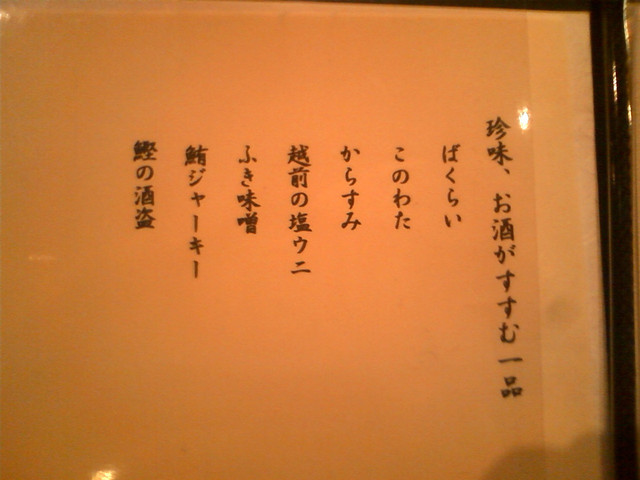 珍味、お酒がすすむ一品
ばくらい
このわた
からすみ
越前の塩ウニ
ふき味噌
鮪ジャーキー
鰹の酒盗